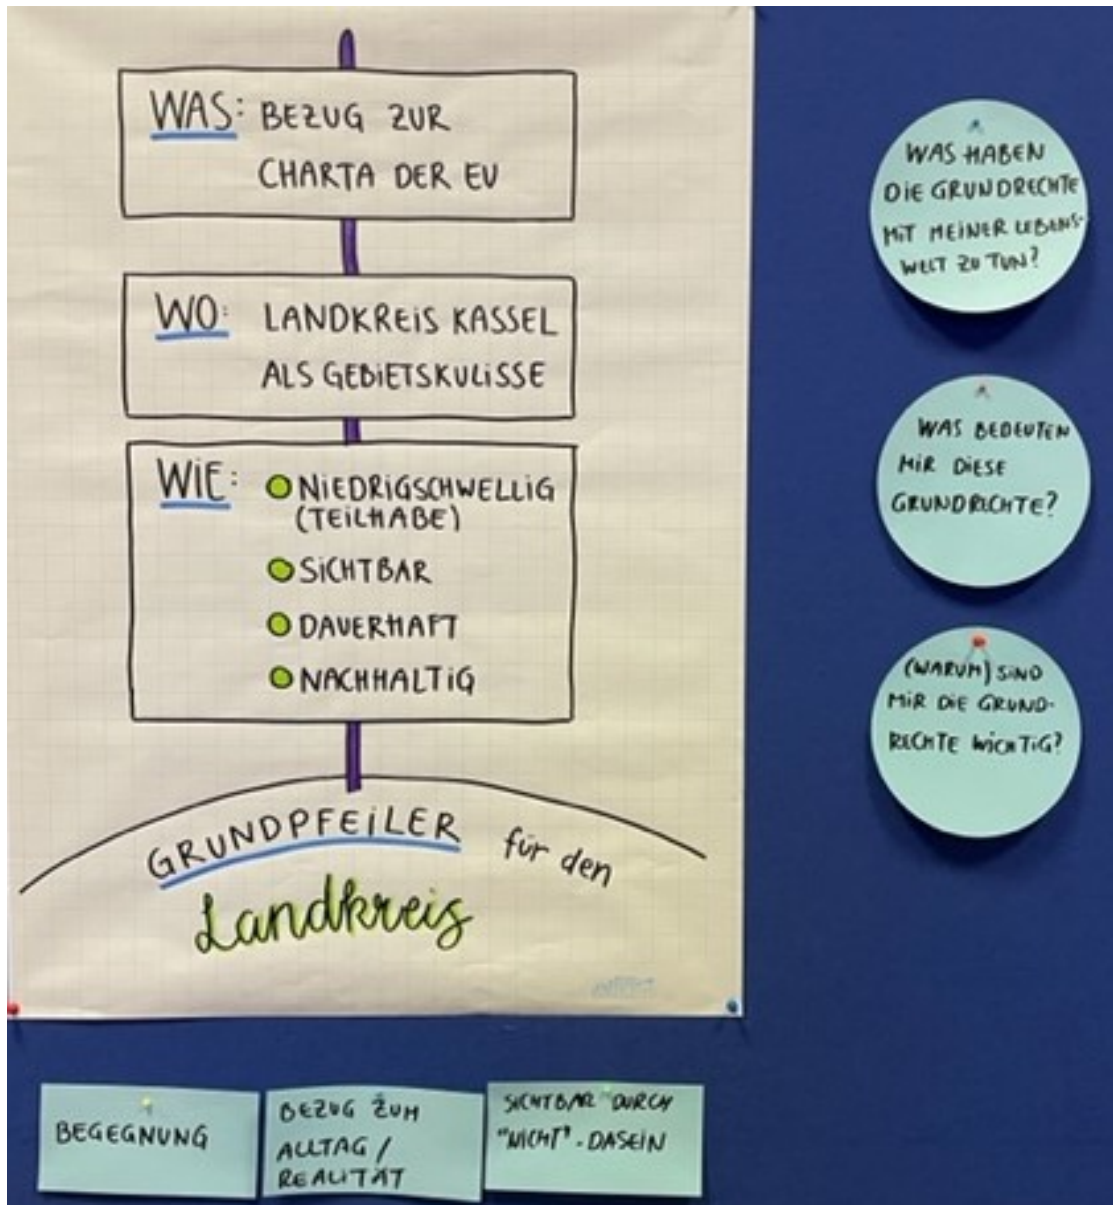 WAS: BEZUG ZUR
CHARTA DER EU
WO: LANDKREIS KASSEL
ALS GEBIETSKULISSE
WIE: NIEDRIGSCHWELLIG
(TEILHABE)
SICHTBAR
DAUERHAFT
NACHHALTIG
GRUNDPFEILER für den
Landkreis
WAS HABEN
DIE GRUNDRECHTE
MIT MEINER LEBENS-
WELT ZU TUN?
WAS BEDEUTEN
MIR DIESE
GRUNDRECHTE?
(WARUM) SIND
MIR DIE GRUND-
RECHTE WICHTIG?
BEGEGNUNG
BEZUG ZUM
ALLTAG /
REALITÄT
SICHTBAR DURCH
"NICHT"-DASEIN